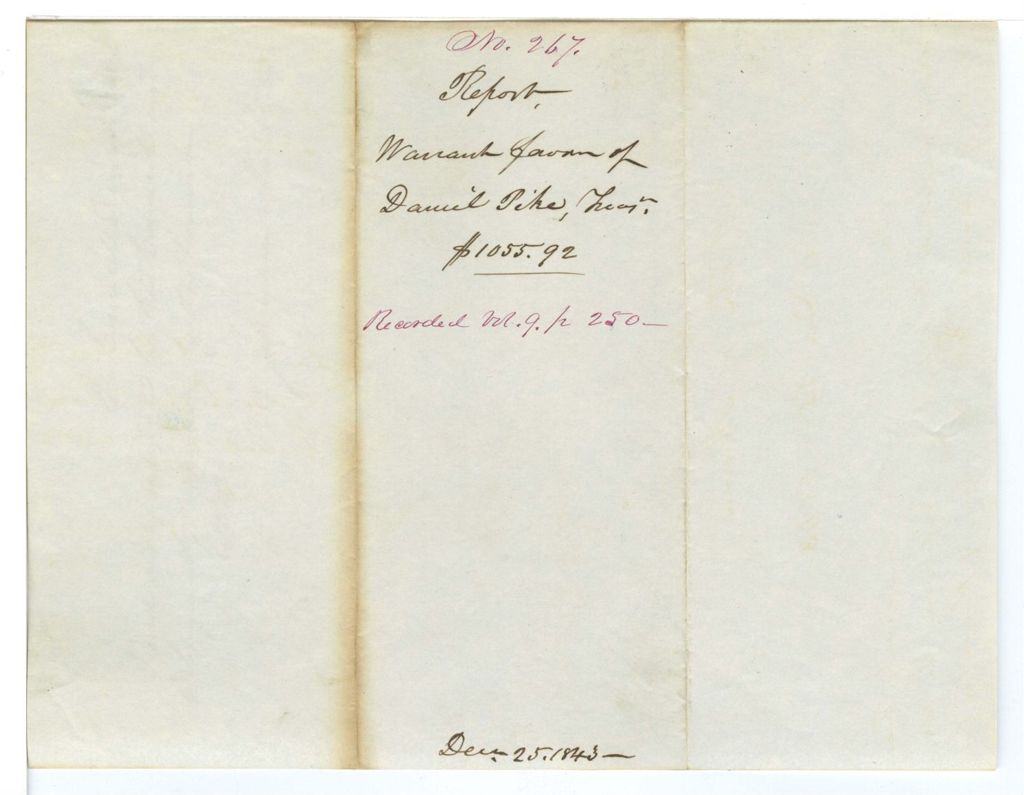 No. 267.
Report,
Warrant favor of
Daniel Pike, Treasr.
$1055.92
Recorded Vol. 9. p 250—
Decr 25. 1843—